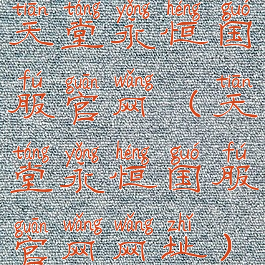 tiān táng yǒng héng guó
天堂永恒国
fú guān wǎng tiān
服官网（天
táng yǒng héng guó fú
堂永恒国服
guān wǎng wǎng zhǐ
官网网址）